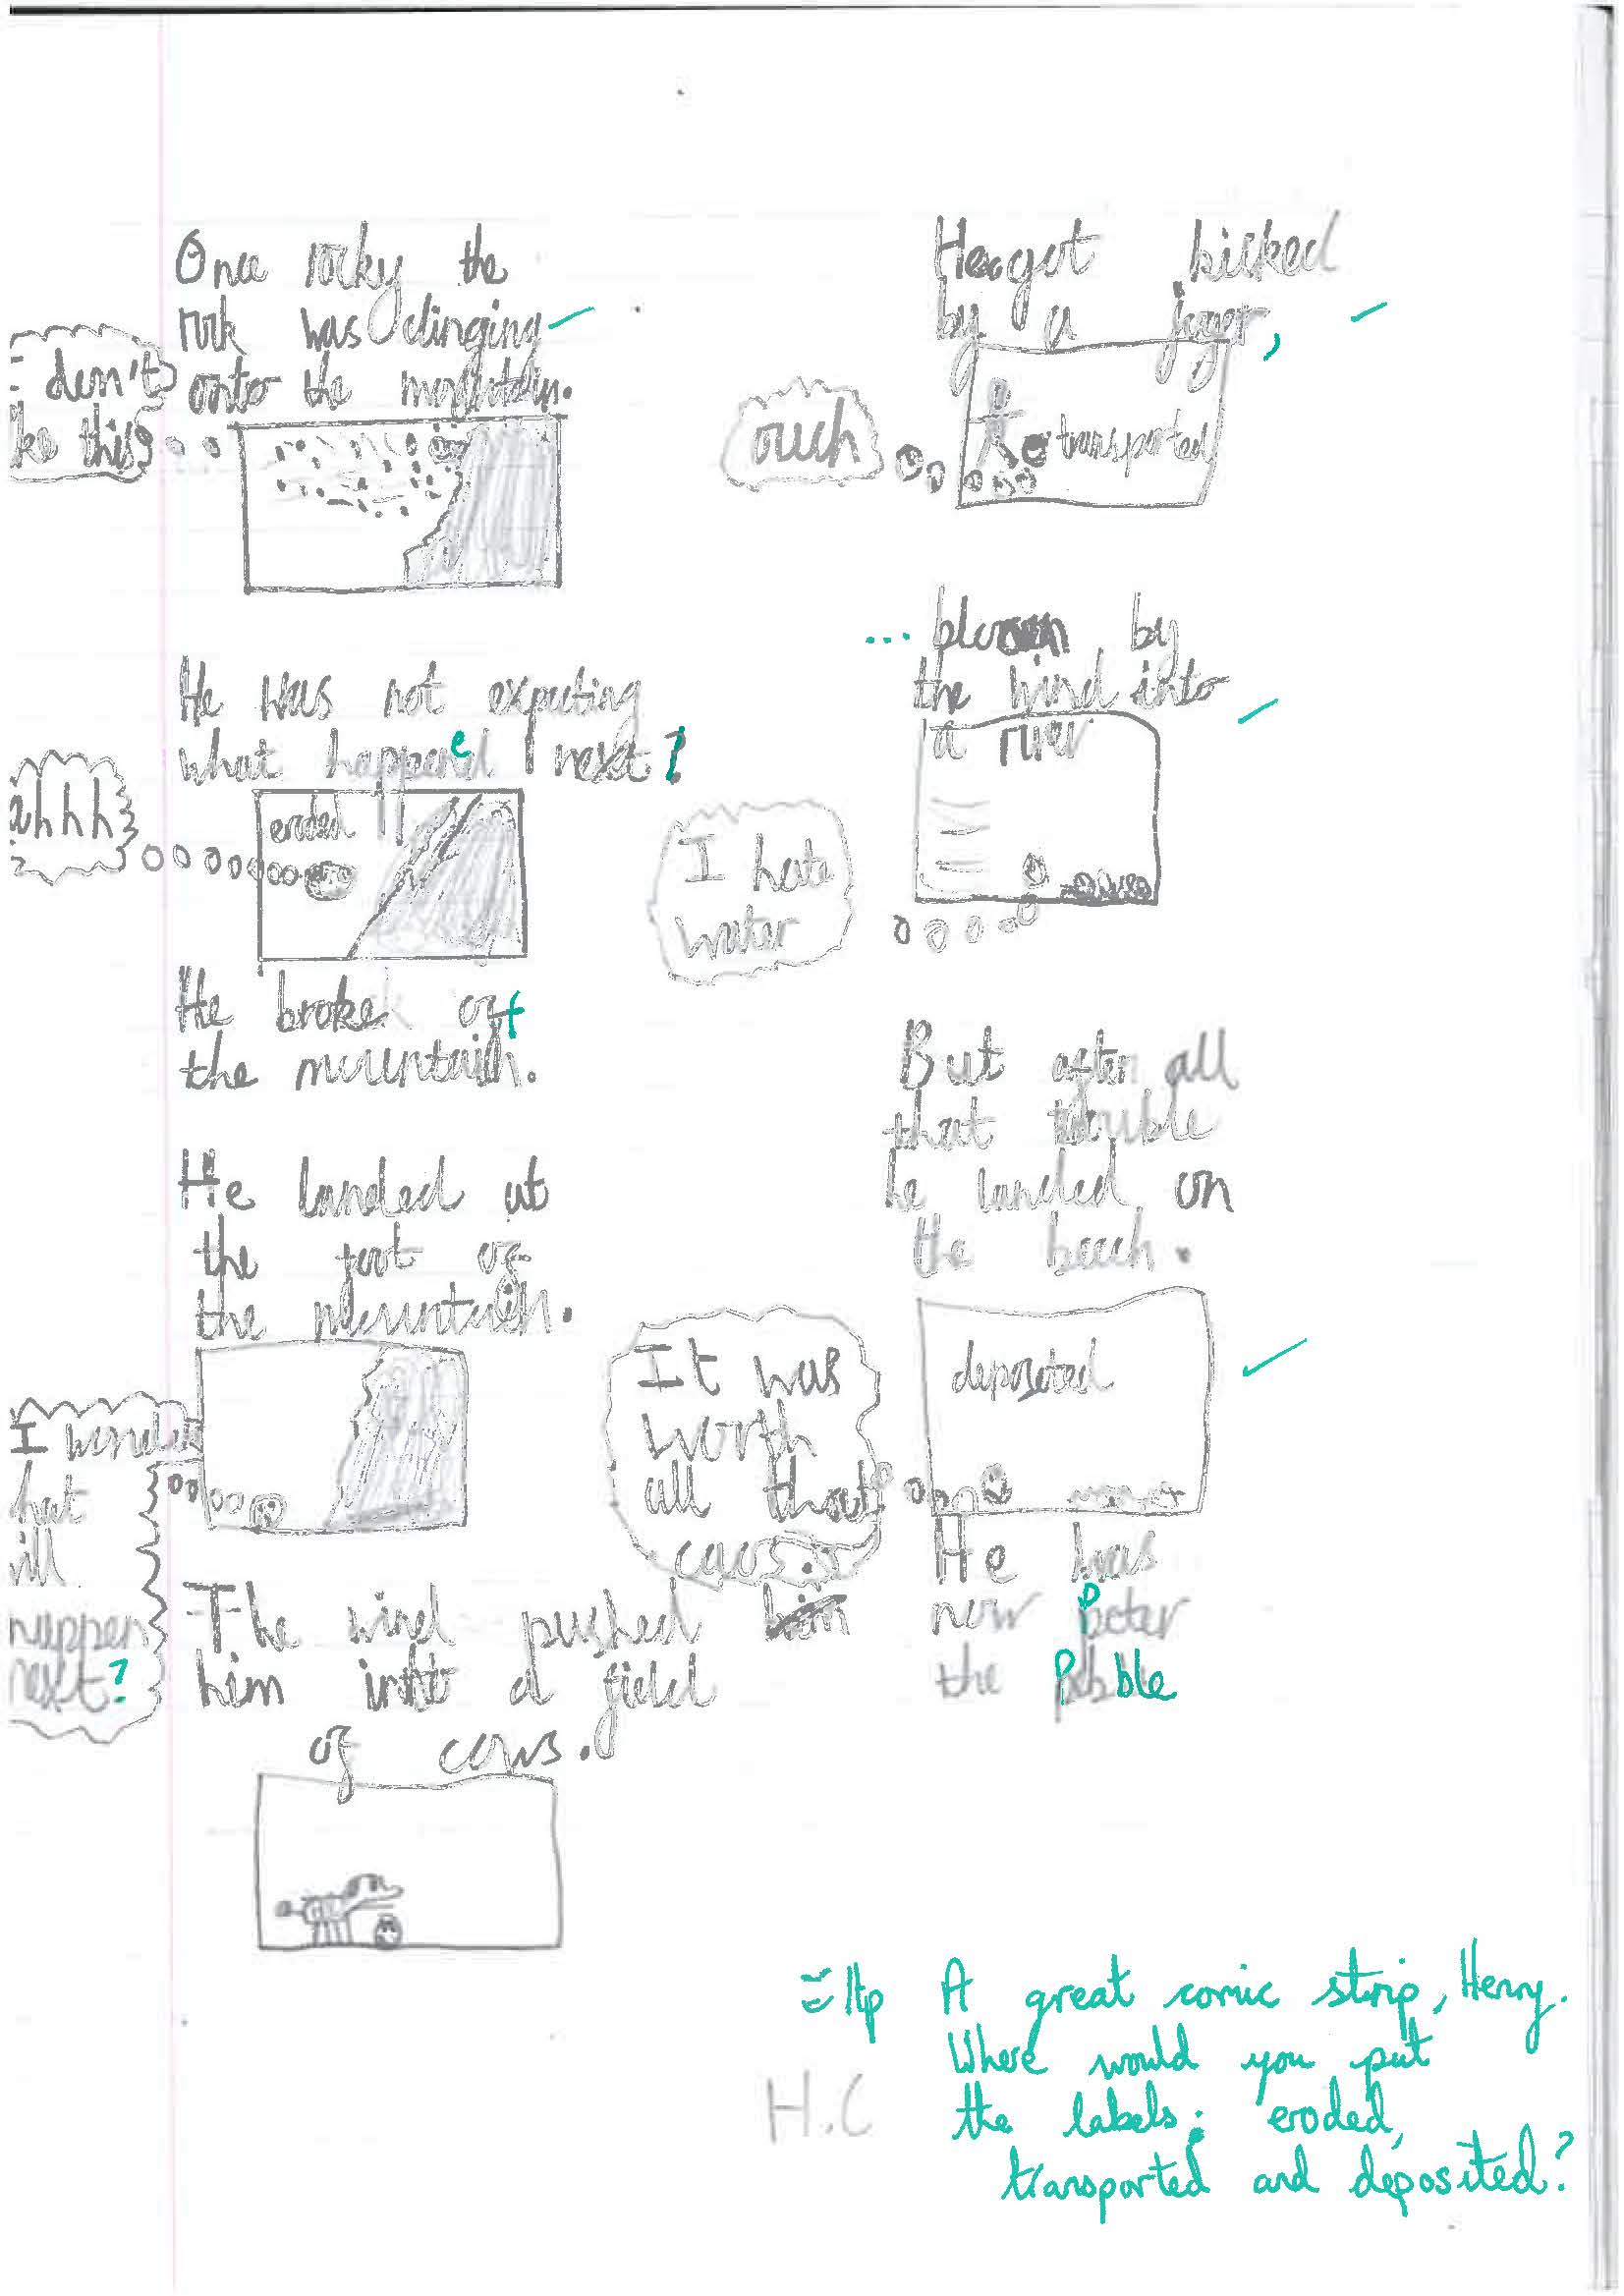 Once rocky the
rock was clinging
onto the mountain.
I don't
ke this
He was not expecting
what happened next?
ahhh
eroded
He broke of
the mountain.
He landed at
the foot of
the mountain.
I wonder
hat
ill
happen
next?
The wind pushed
him into a field
of cows.
He got kicked
by a joger,
ouch
transported
... blown by
the wind into
a river
I hate
water
But after all
that trouble
he landed on
the beach.
It was
worth
all that
caos
deposited
He was
now Peter
the Pebble
1Hp A great comic strip, Henry.
Where would you put
the labels: eroded,
transported and deposited?
H.C